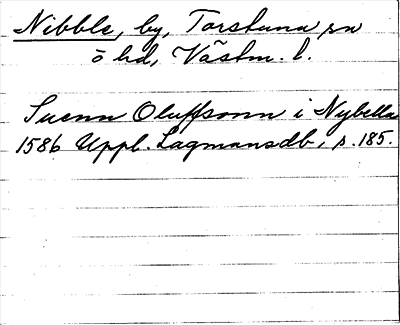 Nibble, by, Torstuna sn
ö hd, Västm. l.
Suenn Oluffsonn i Nybella
1586 Uppl. Lagmansdb, s. 185.